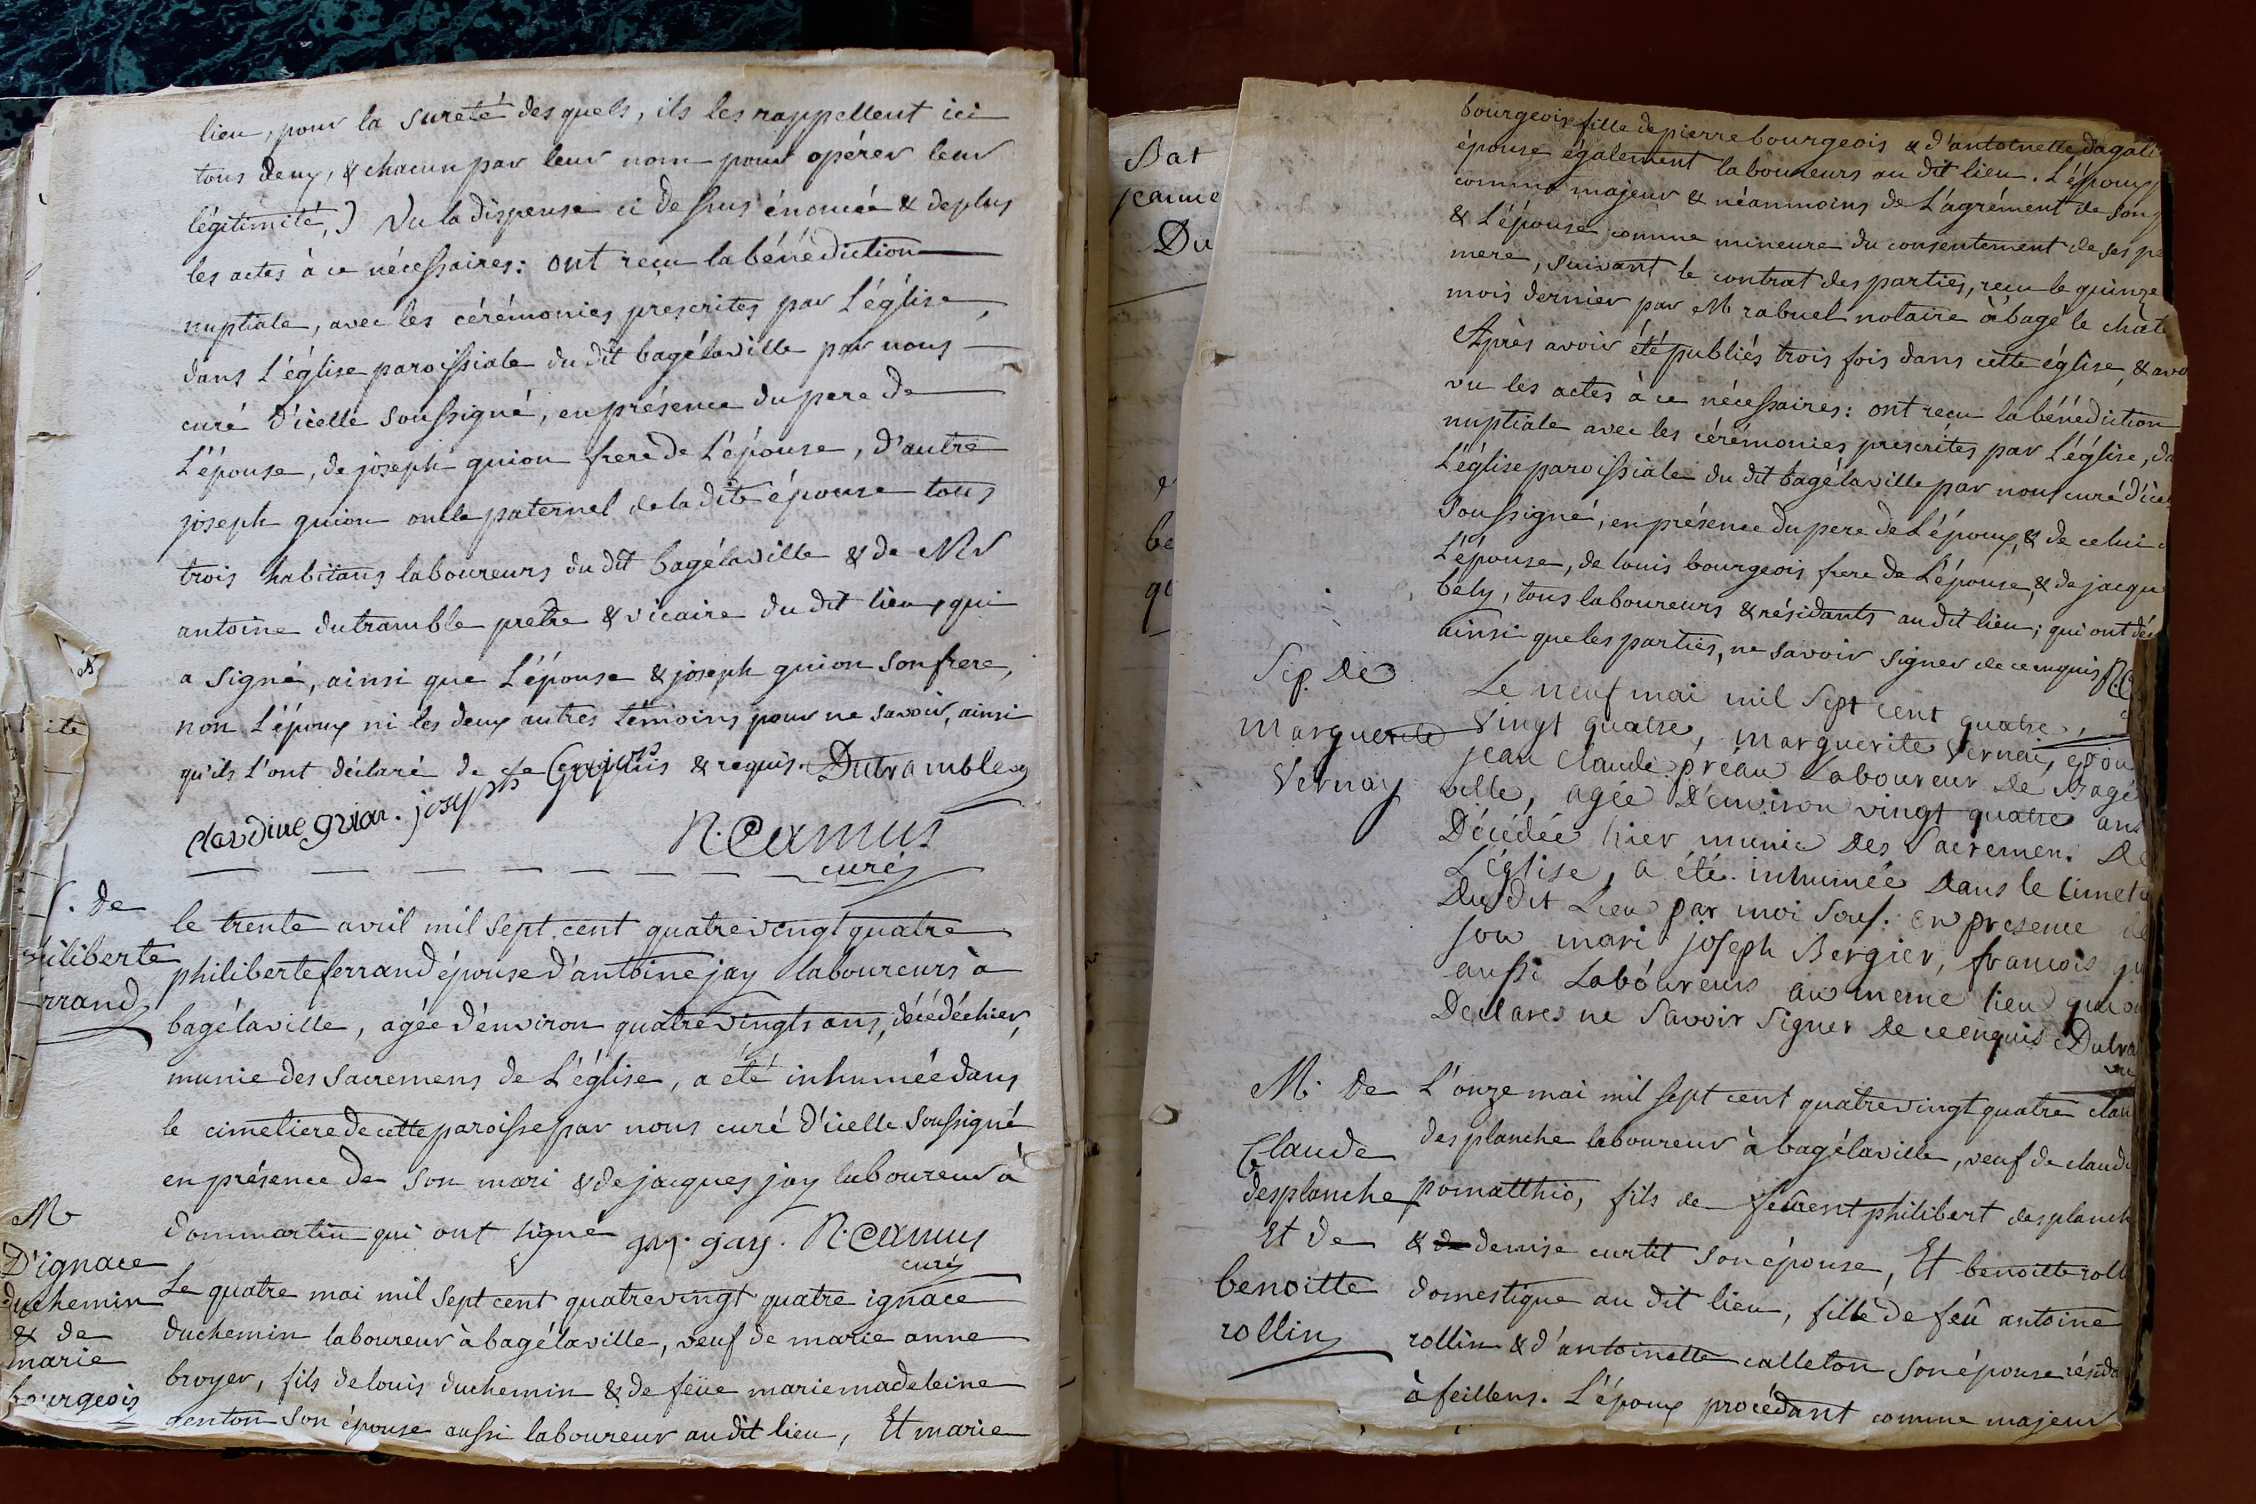 lieu, pour la sureté des quels, ils les rappellent ici
tous deux, & chacun par leur nom pour opérer leur
légitimité,) Vu la dispense ci dessus énoncée & de plus
les actes à ce nécessaires: ont reçu la bénédiction
nuptiale, avec les cérémonies prescrites par L'église,
dans L'église paroissiale du dit bagélaville par nous
curé d'icelle soussigné, en présence du pere de
L'épouse, de joseph guion frere de L'épouse, d'autre
joseph guion oncle paternel de la dite épouse tous
trois habitans laboureurs du dit bagélaville & de Mr
antoine dutramble pretre & vicaire du dit lieu, qui
a signé, ainsi que L'épouse & joseph guion son frere,
non L'époux ni les deux autres témoins pour ne savoir, ainsi
qu'ils l'ont déclaré de ce enquis & requis. Dutramble
claudine guion. joseph
N. Camus
curé
. de
philiberte
rrand
le trente avril mil sept cent quatrevingt quatre
philiberte ferrand épouse d'antoine jay laboureurs à
bagélaville, agée d'environ quatre vingts ans, décédée hier,
munie des sacremens de L'église, a été inhumée dans
le cimetiere de cette paroisse par nous curé d'icelle soussigné
en présence de son mari & de jacques jay laboureur à
dommartin qui ont signé jay. jay. N. Camus
curé
M
D'ignace
duchemin
& de
marie
bourgeois
Le quatre mai mil sept cent quatrevingt quatre ignace
duchemin laboureur à bagélaville, veuf de marie anne
broyer, fils de louis duchemin & de feüe marie madeleine
genton son épouse aussi laboureur au dit lieu, Et marie
Bat
jeanne
Du
be
qu
bourgeois fille de pierre bourgeois & d'antoinette dagall
épouse également laboureurs au dit lieu. L'époux
comme majeur & néanmoins de L'agrément de son
& L'épouse comme mineure du consentement de ses pe
mere, suivant le contrat des parties, reçu le quinze
mois dernier par M rabuel notaire à bagé le chate
Après avoir été publiés trois fois dans cette église, & avo
vu les actes à ce nécessaires: ont reçu la bénédiction
nuptiale avec les cérémonies prescrites par L'église, da
L'église paroissiale du dit bagélaville par nous curé d'icel
soussigné, en présence du pere de L'époux, & de celui d
L'épouse, de louis bourgeois frere de L'épouse, & de jacque
bely, tous laboureurs & résidants au dit lieu; qui ont déc
ainsi que les parties, ne savoir signer de ce enquis
Sep. De
Marguerite
Vernay
Le neuf mai mil sept cent quatre
vingt quatre, marguerite Vernai, epou
jean claude préau Laboureur De Bagé
ville, agée D'environ vingt quatre ans
Décédée hier munie Des Sacremen. De
L'église, a été inhumée Dans le Cimet
Dudit Lieu par moi Sous. en presence de
son mari joseph Bergier, francois gu
aussi Laboureurs au meme lieu qui on
Declares ne Savoir Signer De ce enquis Dutra
vic
M. De
Claude
desplanche
Et de
benoitte
rollin
L'onze mai mil sept cent quatrevingt quatre clau
desplanche laboureur à bagélaville, veuf de claudi
pomatthio, fils de feu philibert desplanch
& de denise curtit son épouse, Et benoitte roll
domestique au dit lieu, fille de feû antoine
rollin & d'antoinette calleton son épouse résida
à feillens. L'époux procédant comme majeur